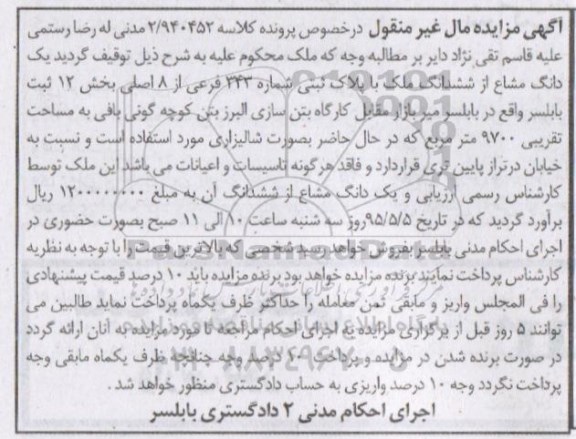 آگهی مزایده مال غیر منقول درخصوص پرونده کلاسه ۲/۹۴۰۴۵۲ مدنی له رضا رستمی
علیه قاسم تقی نژاد دایر بر مطالبه وجه که ملک محکوم علیه به شرح ذیل توقیف گردید یک
دانگ مشاع از ششدانگ ملک با پلاک ثبتی شماره ۳۴۳ فرعی از ۸ اصلی بخش ۱۲ ثبت
بابلسر واقع در بابلسر میر بازار مقابل کارگاه بتن سازی البرز بتن کوچه گونی بافی به مساحت
تقریبی ۹۷۰۰ متر مربع که در حال حاضر بصورت شالیزاری مورد استفاده است و نسبت به
خیابان درتراز پایین تری قراردارد و فاقد هرگونه تاسیسات و اعیانات می باشد این ملک توسط
کارشناس رسمی ارزیابی و یک دانگ مشاع از ششدانگ آن به مبلغ ۱۲۰۰۰۰۰۰۰۰ ریال
برآورد گردید که در تاریخ ۹۵/۵/۵ روز سه شنبه ساعت ۱۰ الی ۱۱ صبح بصورت حضوری در
اجرای احکام مدنی بابلسر بفروش خواهد رسید شخصی که بالاترین قیمت را با توجه به نظریه
کارشناس پرداخت نمایند برنده مزایده خواهد بود برنده مزایده باید ۱۰ درصد قیمت پیشنهادی
را فی المجلس واریز و مابقی ثمن معامله را حداکثر ظرف یکماه پرداخت نماید طالبین می
توانند ۵ روز قبل از برگزاری مزایده به اجرای احکام مراجعه تا مورد مزایده به آنان ارائه گردد
در صورت برنده شدن در مزایده و پرداخت ۱۰ درصد وجه چنانچه ظرف یکماه مابقی وجه
پرداخت نگردد وجه ۱۰ درصد واریزی به حساب دادگستری منظور خواهد شد .
اجرای احکام مدنی ۲ دادگستری بابلسر